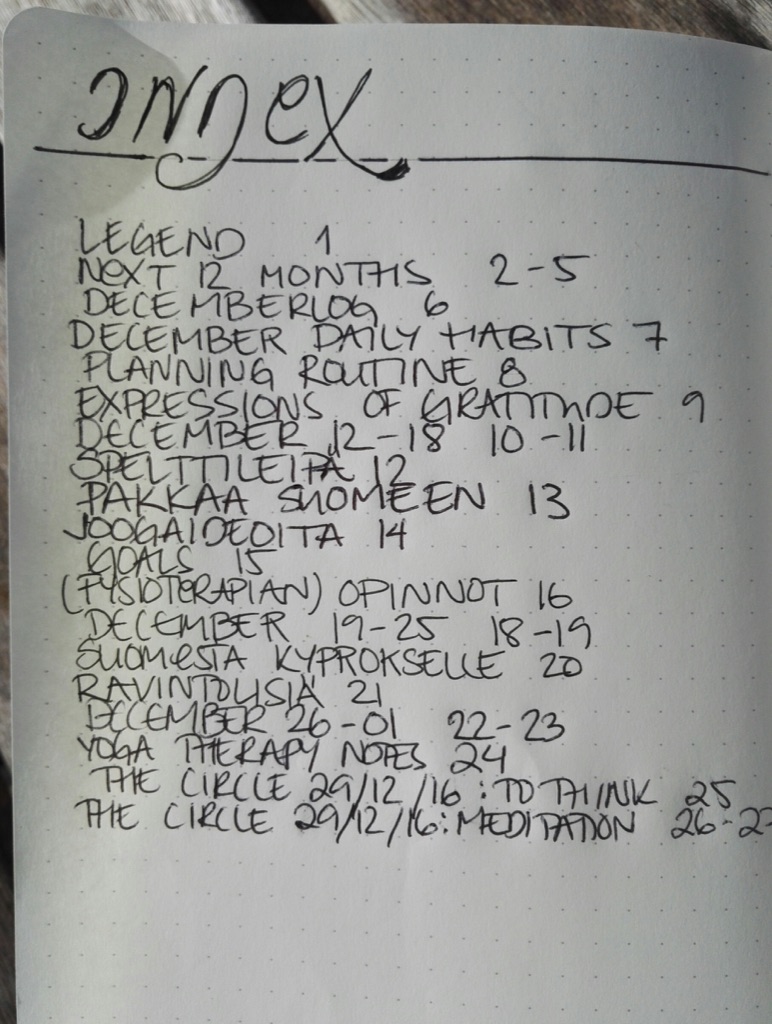 INDEX
LEGEND 1
NEXT 12 MONTHS 2-5
DECEMBERLOG 6
DECEMBER DAILY HABITS 7
PLANNING ROUTINE 8
EXPRESSIONS OF GRATITUDE 9
DECEMBER 12-18 10-11
SPELTTILEIPÄ 12
PAKKAA SUOMEEN 13
JOOGAIDEOITA 14
GOALS 15
(FYSIOTERAPIAN) OPINNOT 16
DECEMBER 19-25 18-19
SUOMESTA KYPROKSELLE 20
RAVINTOLISIÄ 21
DECEMBER 26-01 22-23
YOGA THERAPY NOTES 24
THE CIRCLE 29/12/16: TO THINK 25
THE CIRCLE 29/12/16: MEDITATION 26-27